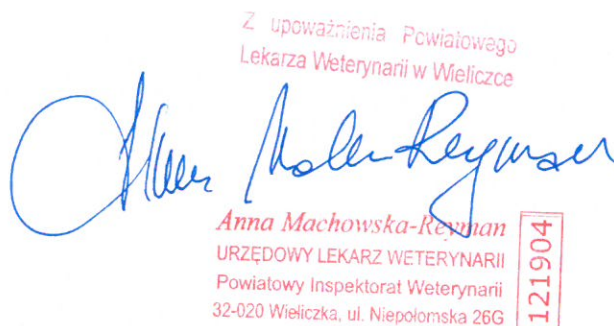 Z upoważnienia Powiatowego
Lekarza Weterynarii w Wieliczce
Anna Machowska-Reyman
URZĘDOWY LEKARZ WETERYNARII
Powiatowy Inspektorat Weterynarii
32-020 Wieliczka, ul. Niepołomska 26G
121904